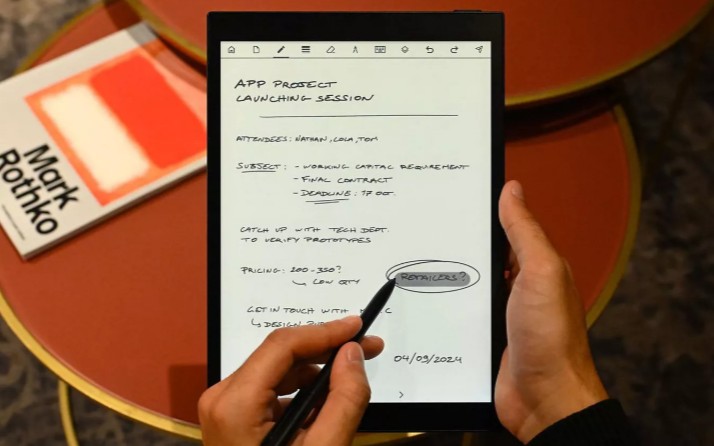 Mark
Rothko
APP PROJECT
LAUNCHING SESSION
ATTENDEES: NATHAN, LOLA, TOM
SUBJECT: - WORKING CAPITAL REQUIREMENT
- FINAL CONTRACT
- DEADLINE: 17 OCT.
CATCH UP WITH TECH DEPT.
TO VERIFY PROTOTYPES
PRICING: 200-350?
RETAILERS?
↳ LOW QTY
GET IN TOUCH WITH
↳ DESIGN
04/09/2024